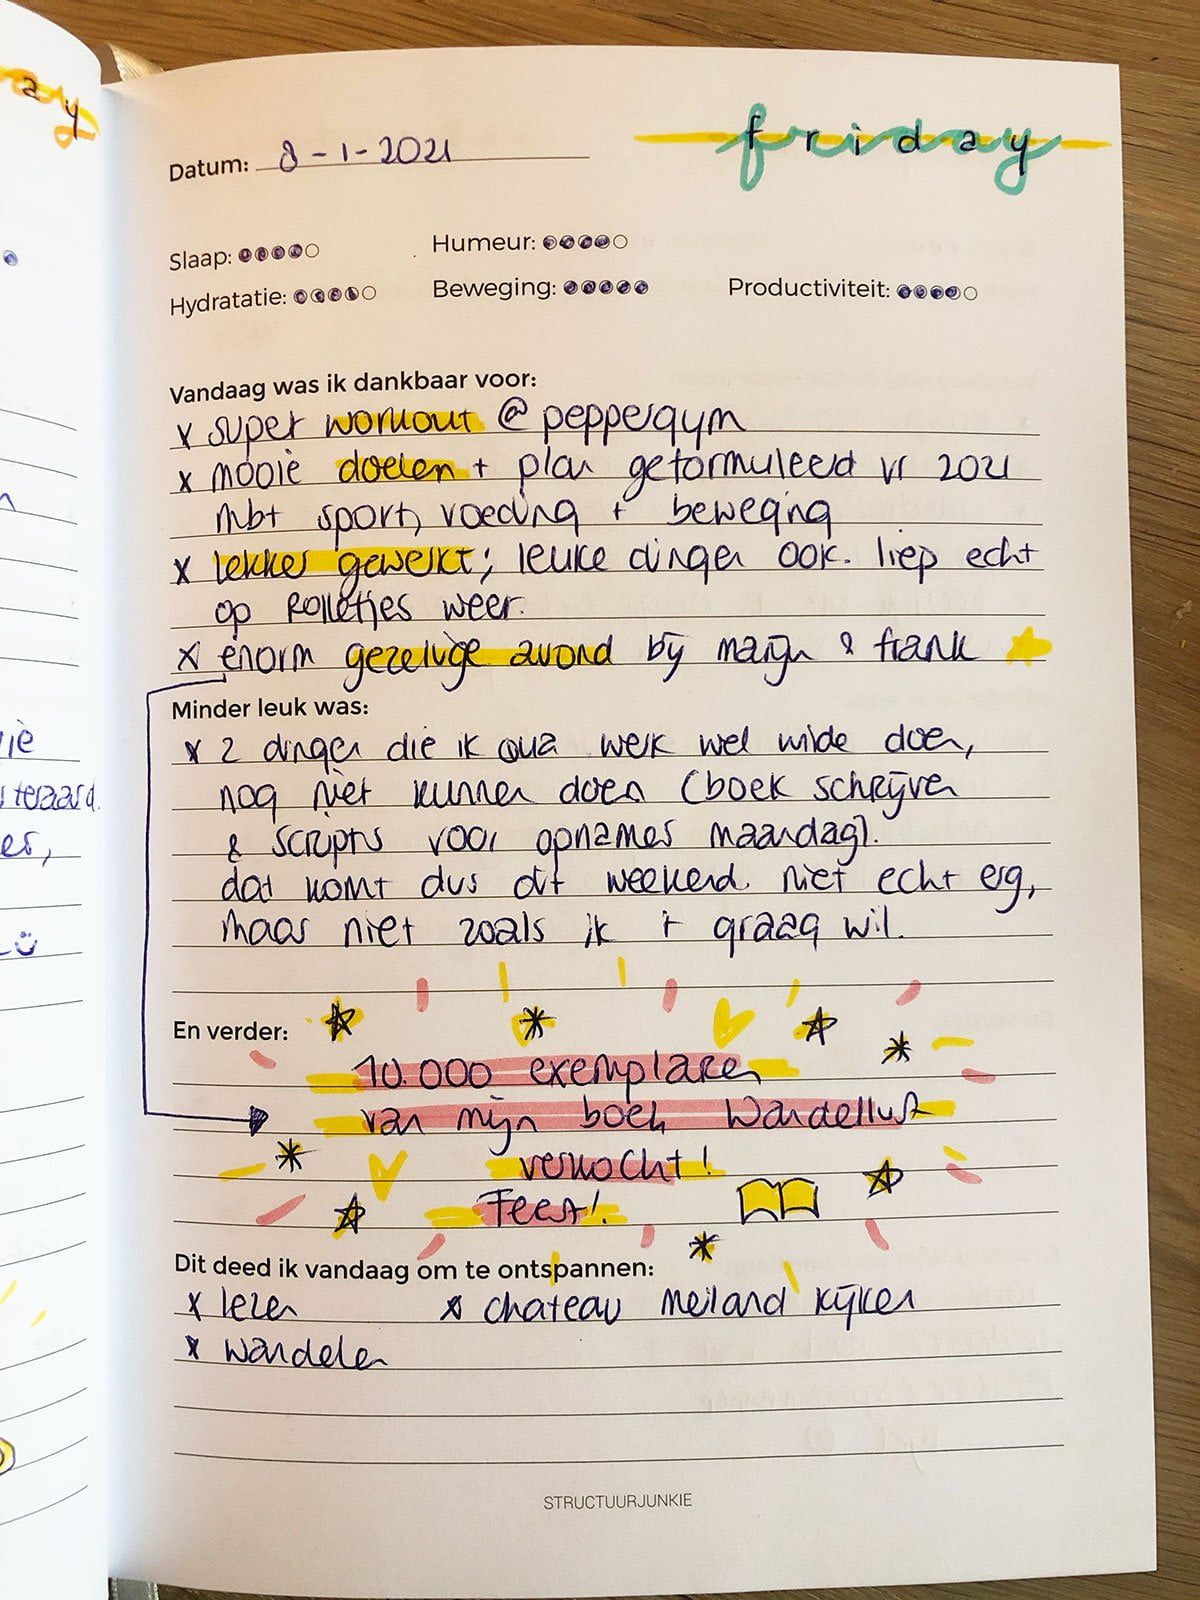 ay
friday
Datum: 8-1-2021
Slaap: Humeur:
Hydratatie: Beweging: Productiviteit:
Vandaag was ik dankbaar voor:
x super workout @ peppergym
x mooie doelen + plan geformuleerd vr 2021
mbt sport, voeding + beweging
x lekker gewerkt; leuke dingen ook. liep echt
op rolletjes weer.
x enorm gezellige avond bij marijn & frank
Minder leuk was:
x 2 dingen die ik qua werk wel wilde doen,
nog niet kunnen doen (boek schrijven
& scripts voor opnames maandag).
dat komt dus dit weekend. niet echt erg,
maar niet zoals ik 't graag wil.
En verder:
10.000 exemplaren
van mijn boek Wandellust
verkocht!
Feest!
Dit deed ik vandaag om te ontspannen:
x lezen x chateau meiland kijken
x wandelen
STRUCTUURJUNKIE